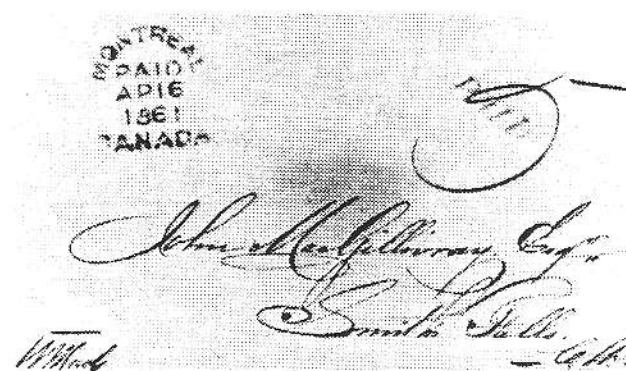 MONTREAL
PAID
AP 16
1861
CANADA
PAID
John MacGillivray Esqr
Smith's Falls
C.W.